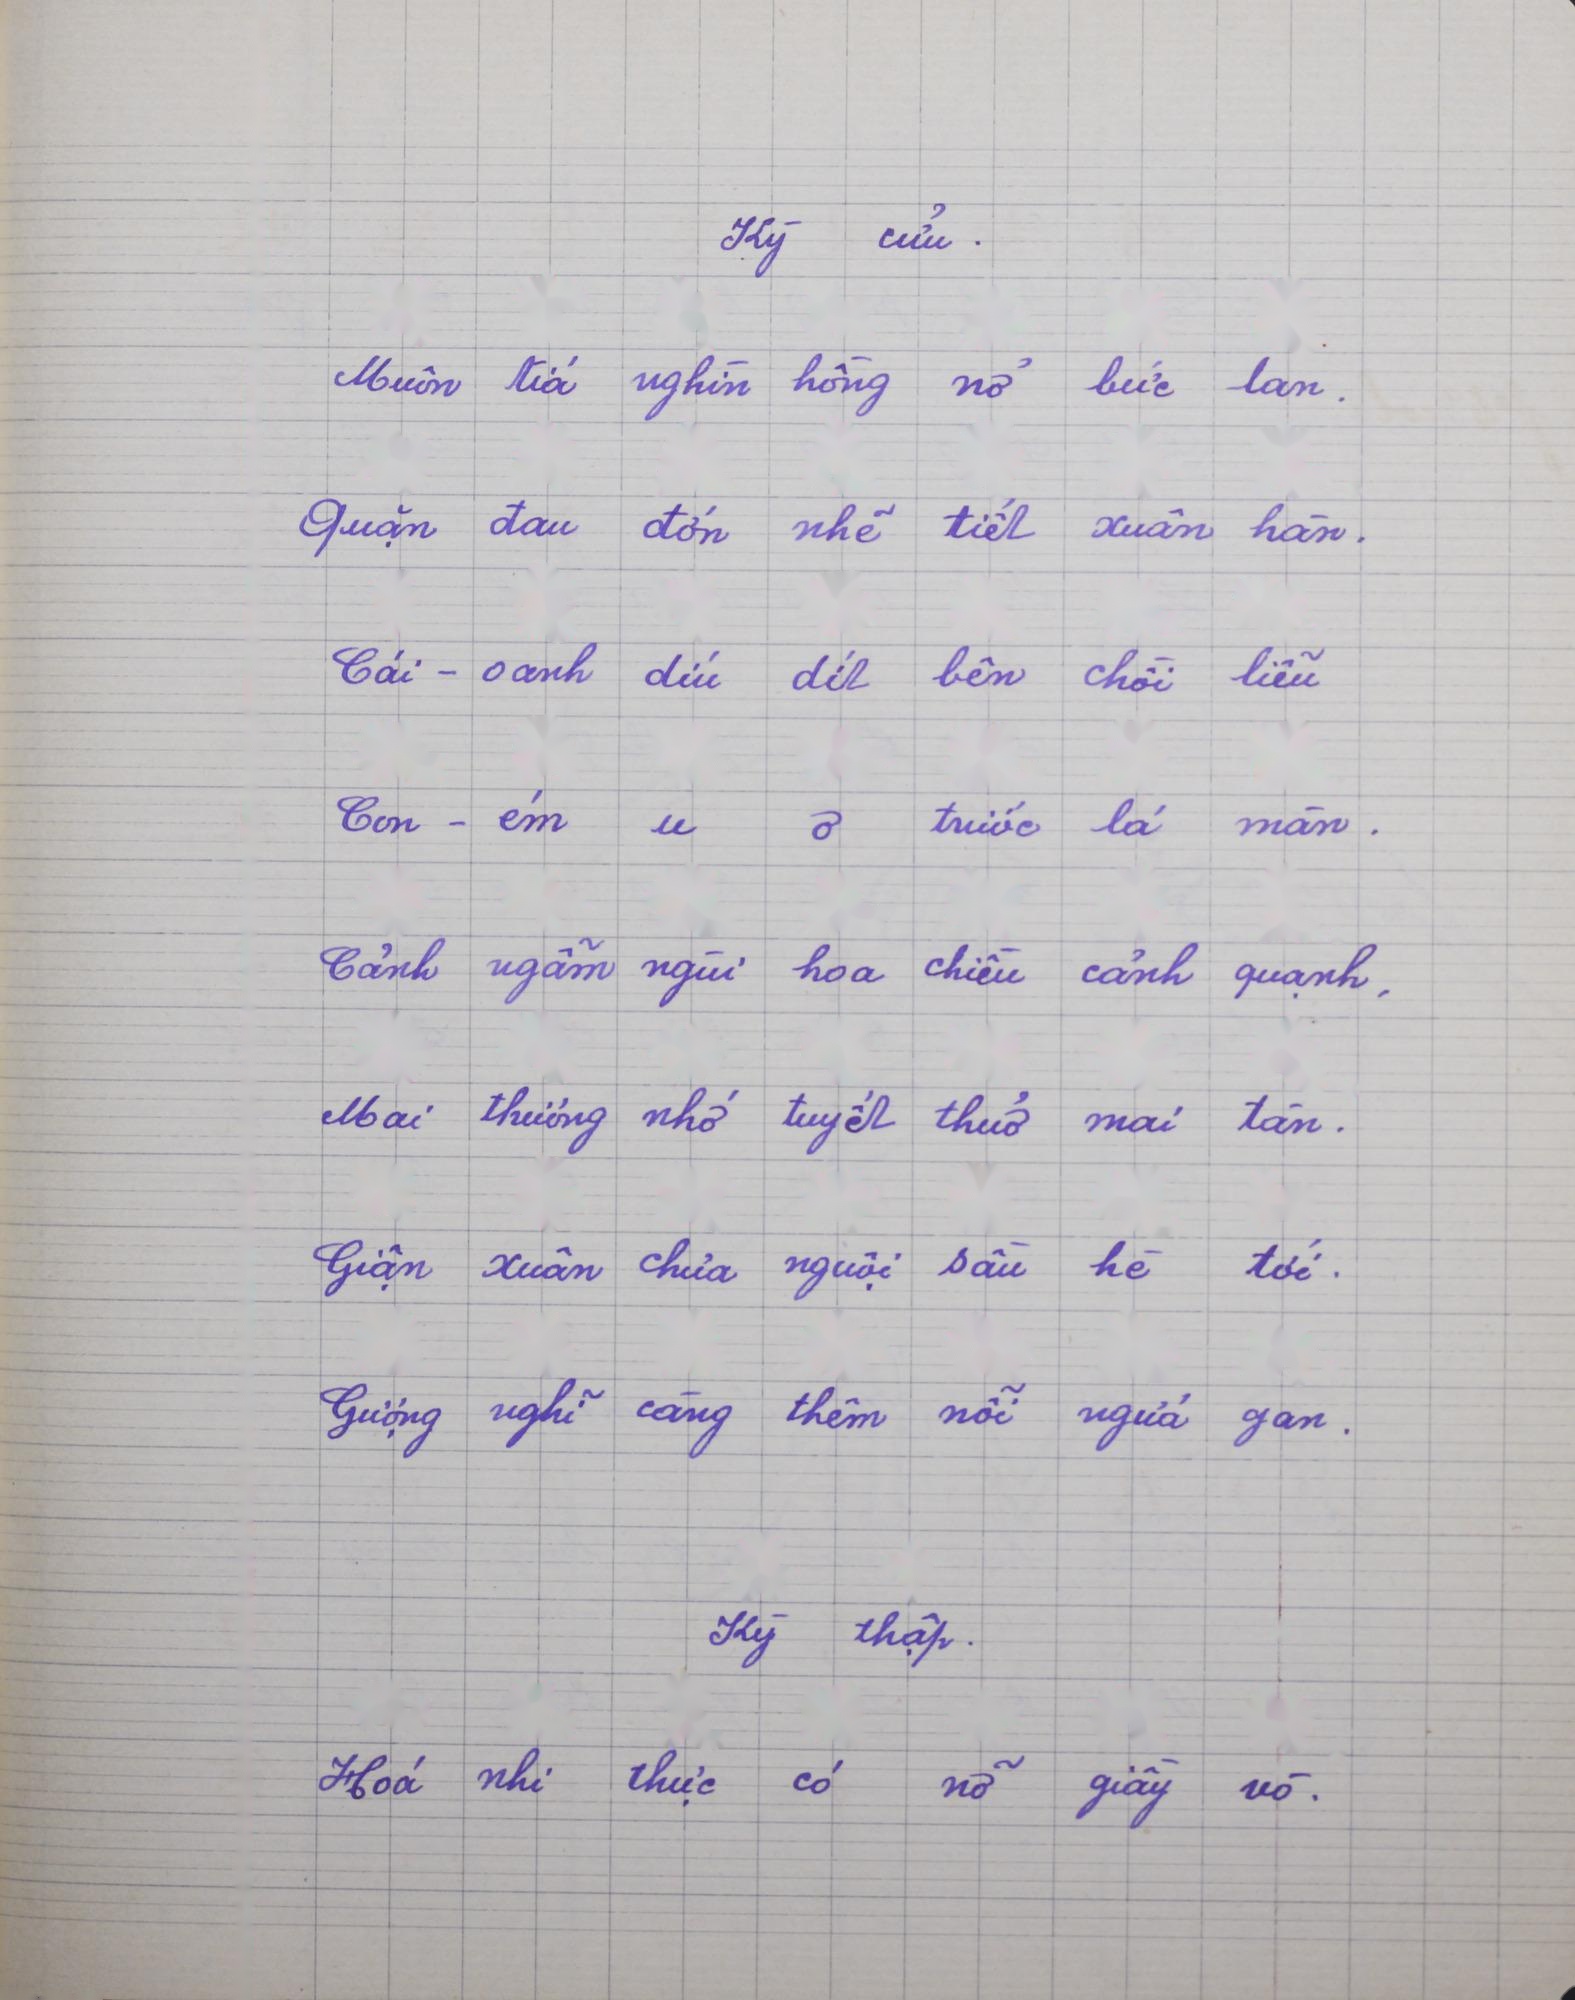 Kỳ cửu.
Muôn tiá nghìn hồng nở bức lan.
Quặn đau đớn nhẽ tiết xuân hàn.
Cái - oanh díu dít bên chồi liễu
Con - ém u ơ trước lá màn.
Cảnh ngẫm ngùi hoa chiều cảnh quạnh,
Mai thương nhớ tuyết thuở mai tàn.
Giận xuân chưa nguội sầu hè tới.
Gượng nghĩ càng thêm nỗi ngứa gan.
Kỳ thập.
Hoá nhi thực có nỡ giầy vò.